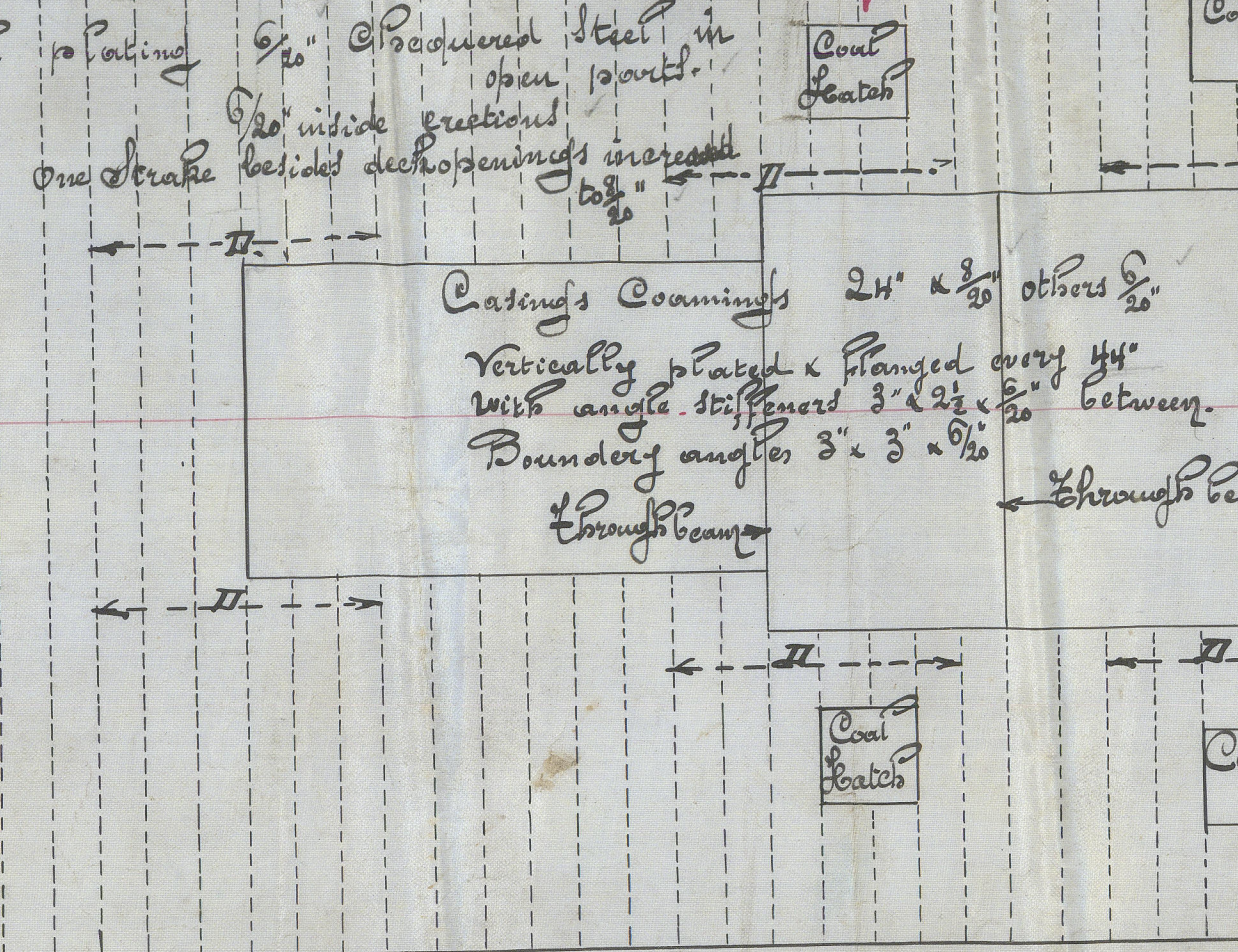 plating 6/20" Chequered Steel in
open parts.
6/20" inside erections
One Strake besides deckopenings increased
to 8/20"
Coal
Hatch
Co
II
II
Casings Coamings 24" x 8/20" others 6/20"
Vertically plated & flanged every 44"
With angle stiffeners 3" x 2½ x 6/20" between.
Boundery angles 3" x 3" x 6/20"
Through beam
Through be
II
II
II
Coal
Hatch
C